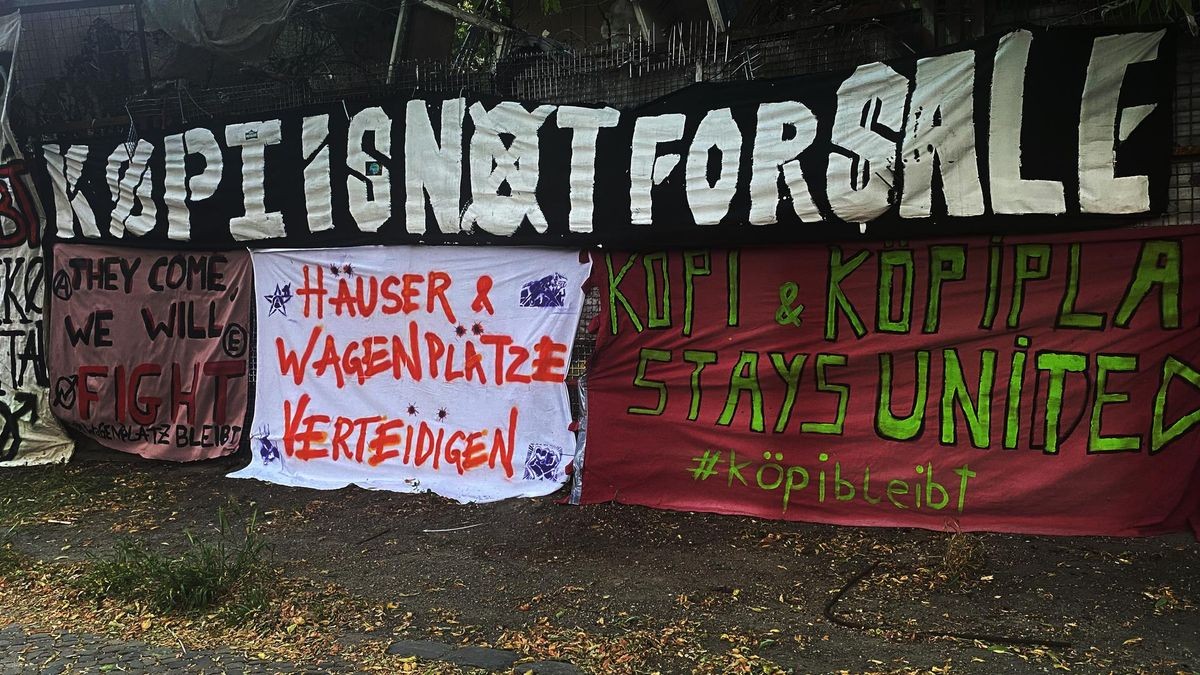 KØPI IS NOT FOR SALE
THEY COME,
WE WILL
FIGHT
WAGENPLATZ BLEIBT
HÄUSER &
WAGENPLÄTZE
VERTEIDIGEN
KÖPI & KÖPIPLA
STAYS UNITED
#köpibleibt